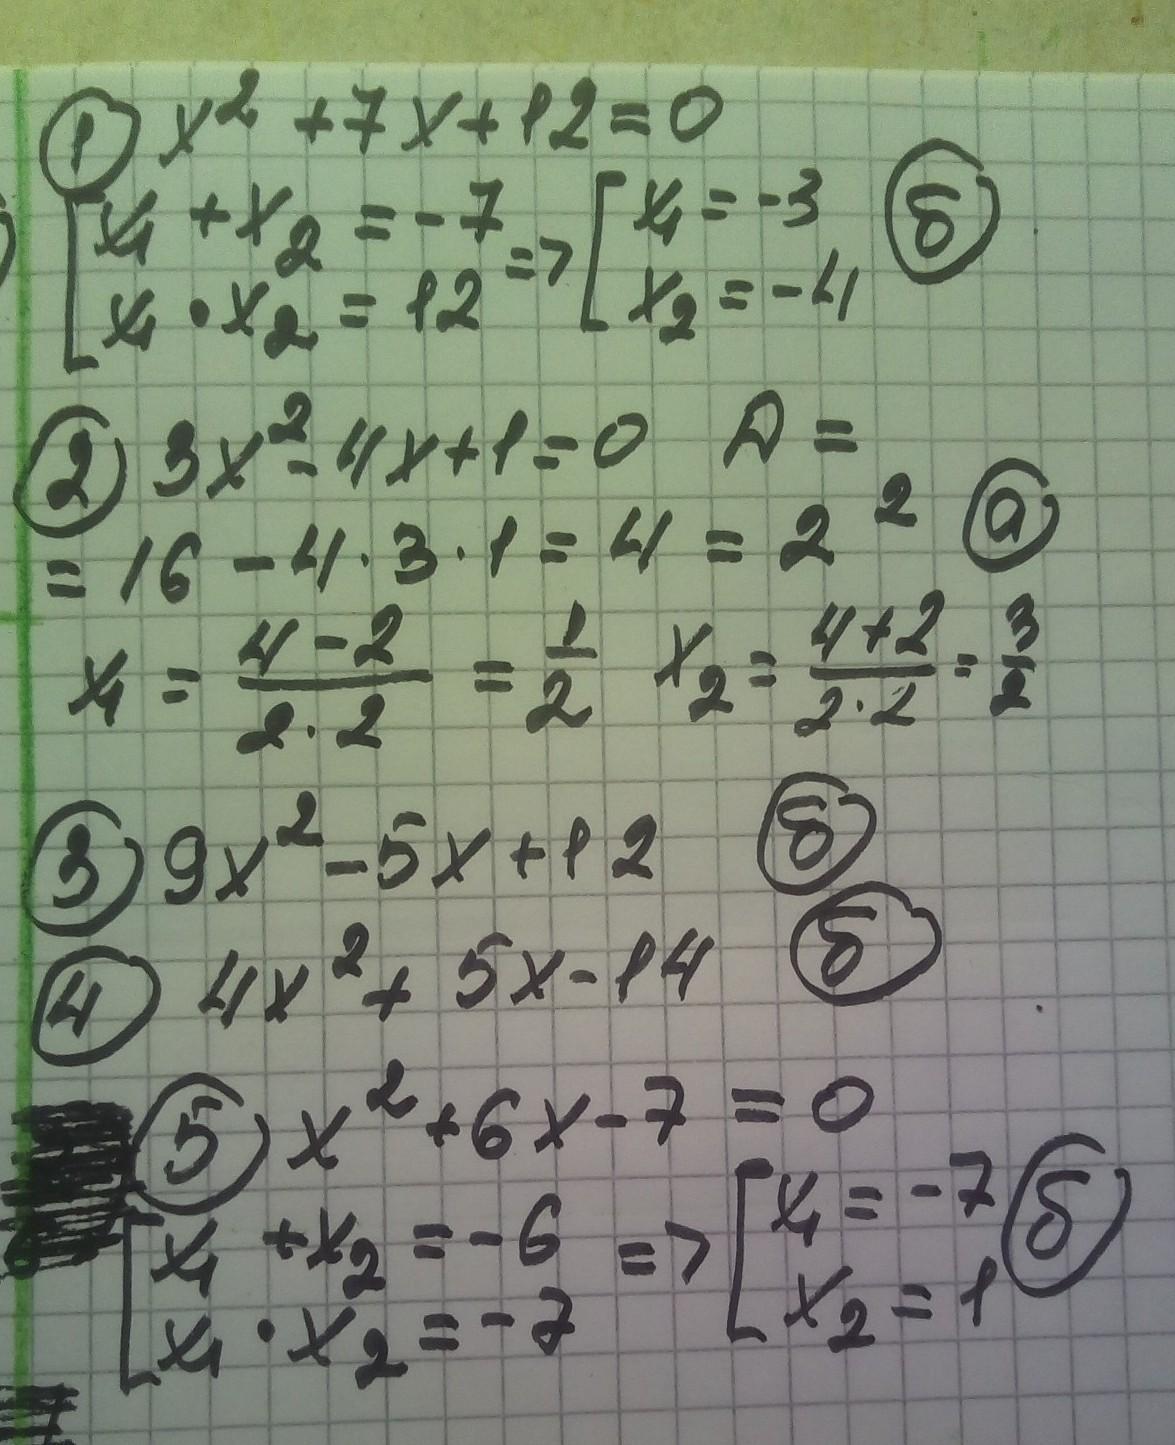 ① x² + 7x + 12 = 0
[ x₁ + x₂ = -7 => [ x₁ = -3 ⓑ
x₁ · x₂ = 12 x₂ = -4
② 3x² - 4x + 1 = 0 D =
= 16 - 4 · 3 · 1 = 4 = 2² ⓐ
x₁ = (4 - 2)/(2 · 2) = 1/2 x₂ = (4 + 2)/(2 · 2) = 3/2
③ 9x² - 5x + 12 (б)
④ 4x² + 5x - 14 (б)
⑤ x² + 6x - 7 = 0
[ x₁ + x₂ = -6 => [ x₁ = -7 (б)
x₁ · x₂ = -7 x₂ = 1